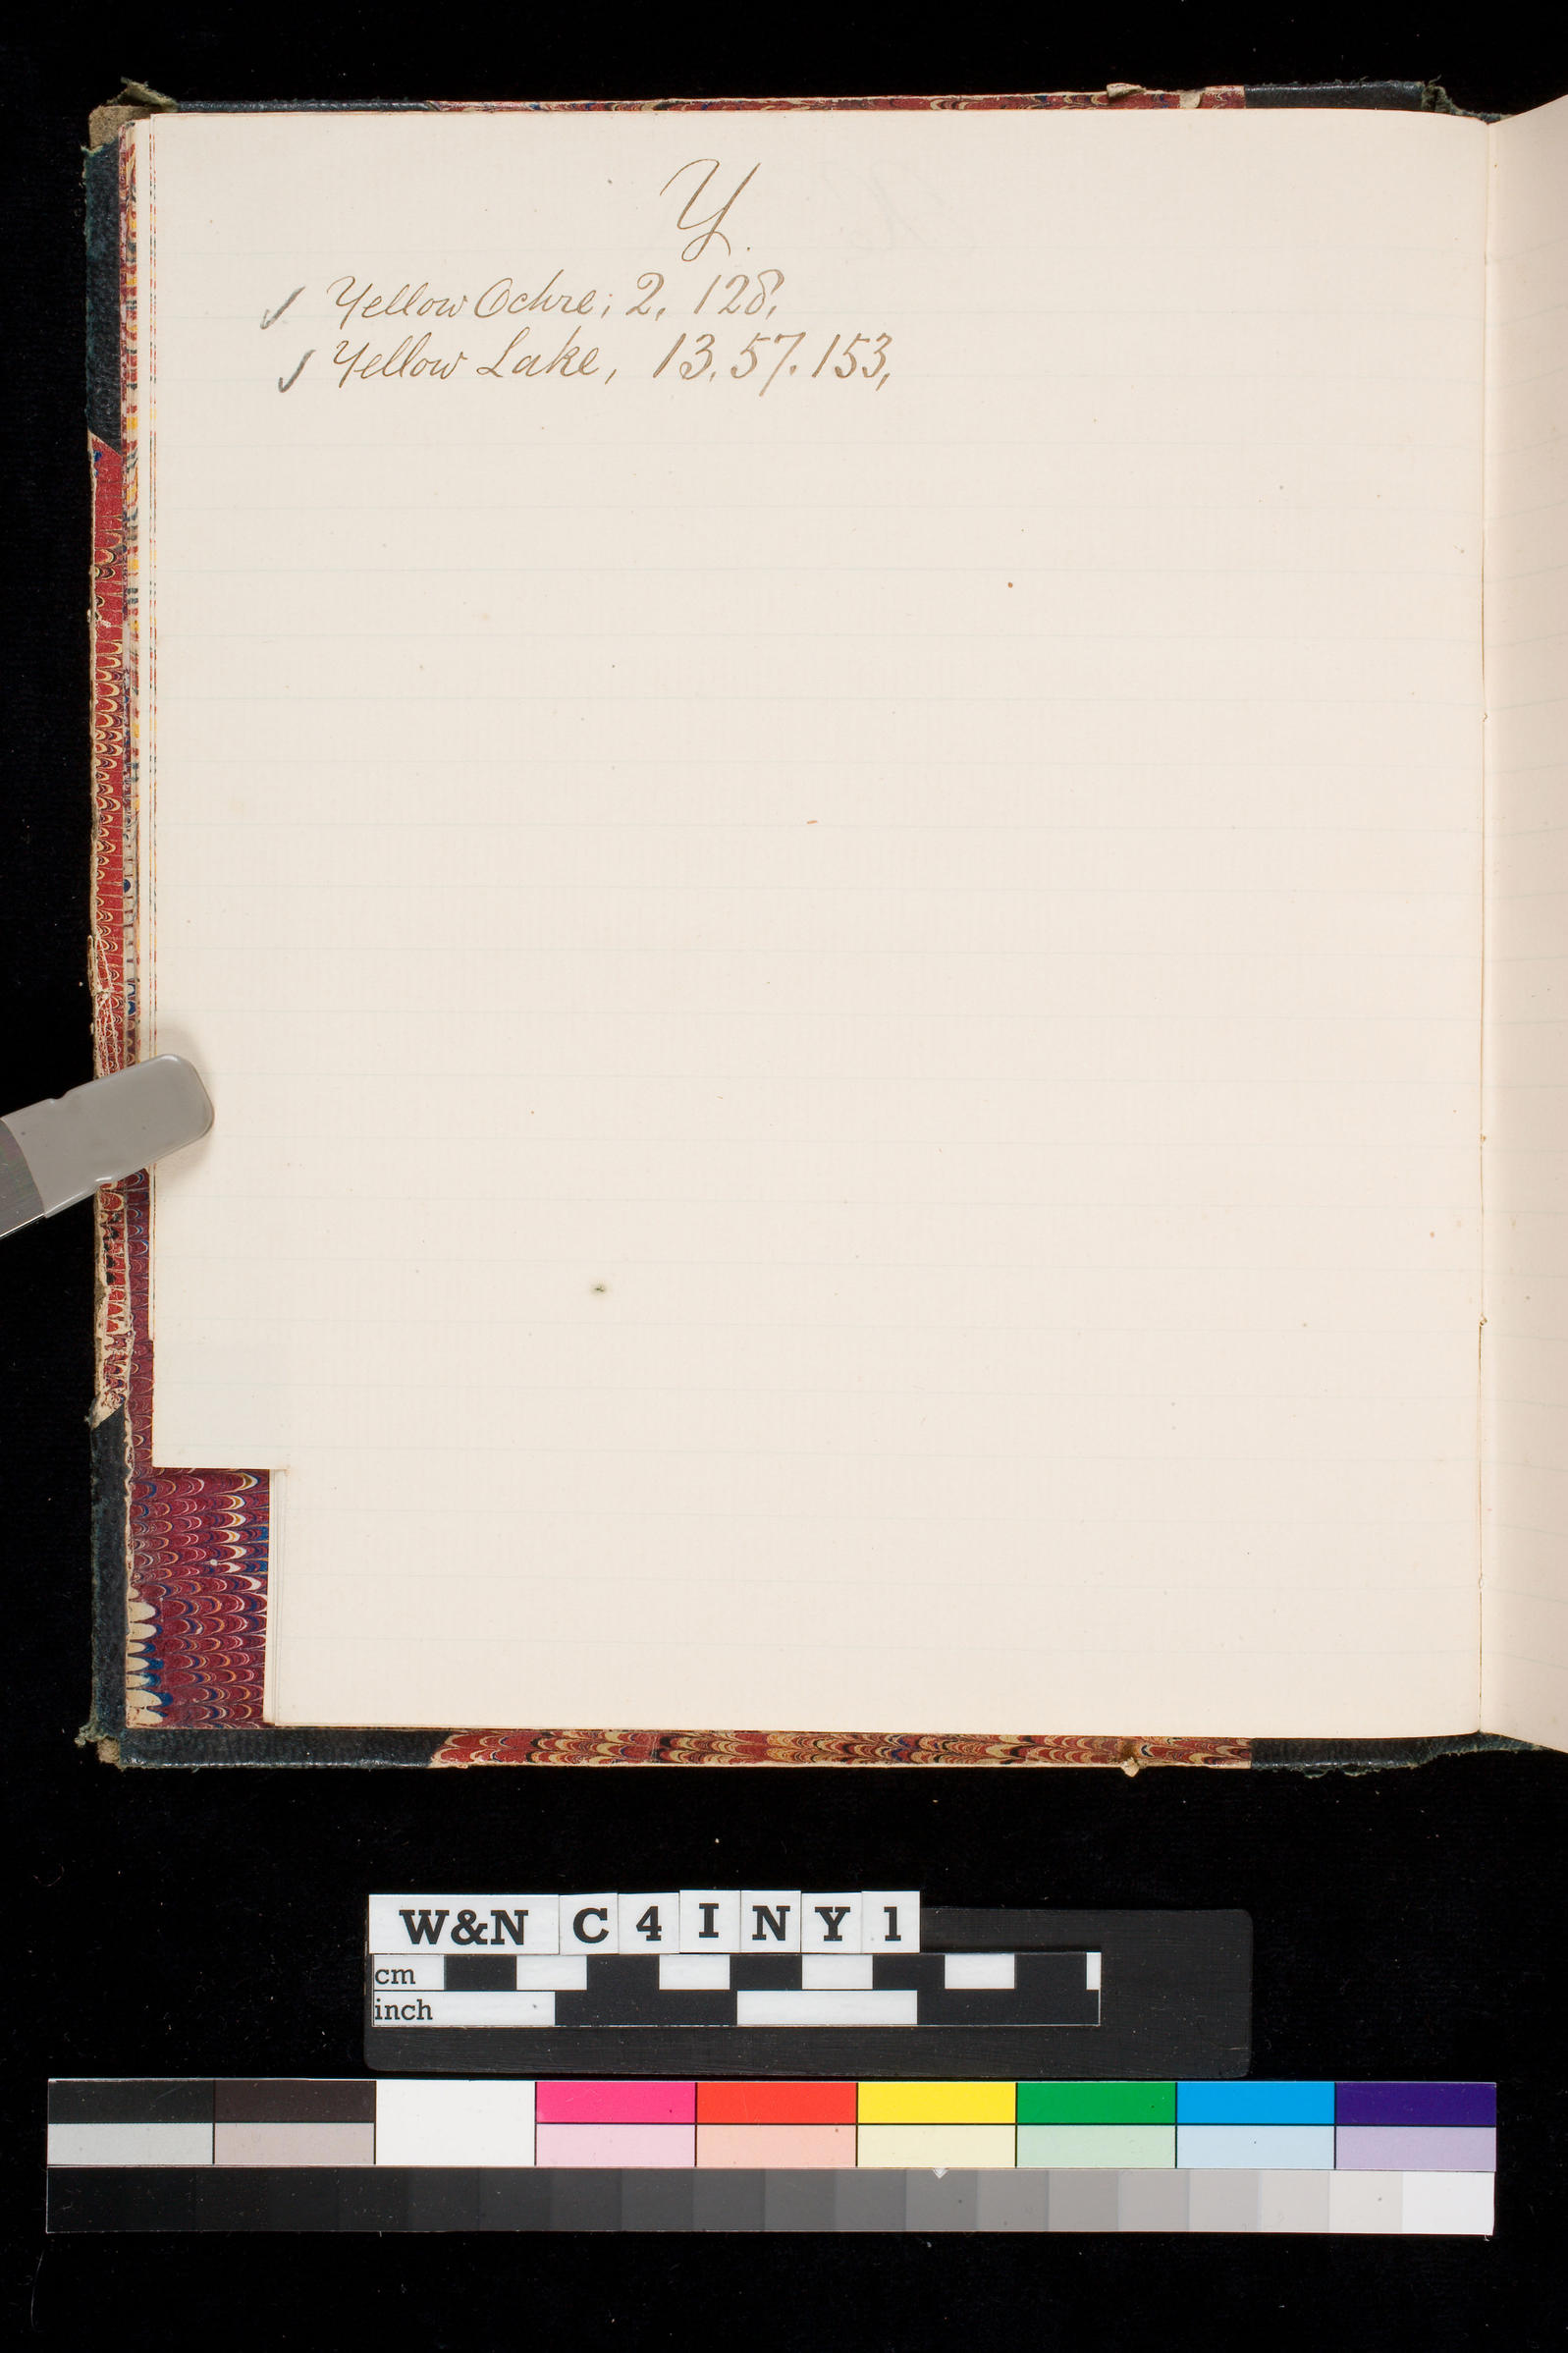 Y.
✓ Yellow Ochre; 2, 128,
✓ Yellow Lake, 13. 57. 153,
W&N C 4 I N Y 1
cm
inch